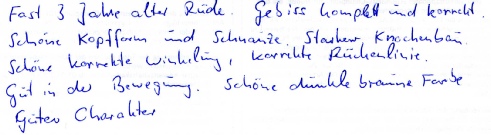 Fast 3 Jahre alter Rüde. Gebiss komplett und korrekt.
Schöne Kopfform und Schnauze. Starker Knochenbau.
Schöne korrekte Winkelung, korrekte Rückenlinie.
Gut in der Bewegung. Schöne dunkle braune Farbe
Guter Charakter